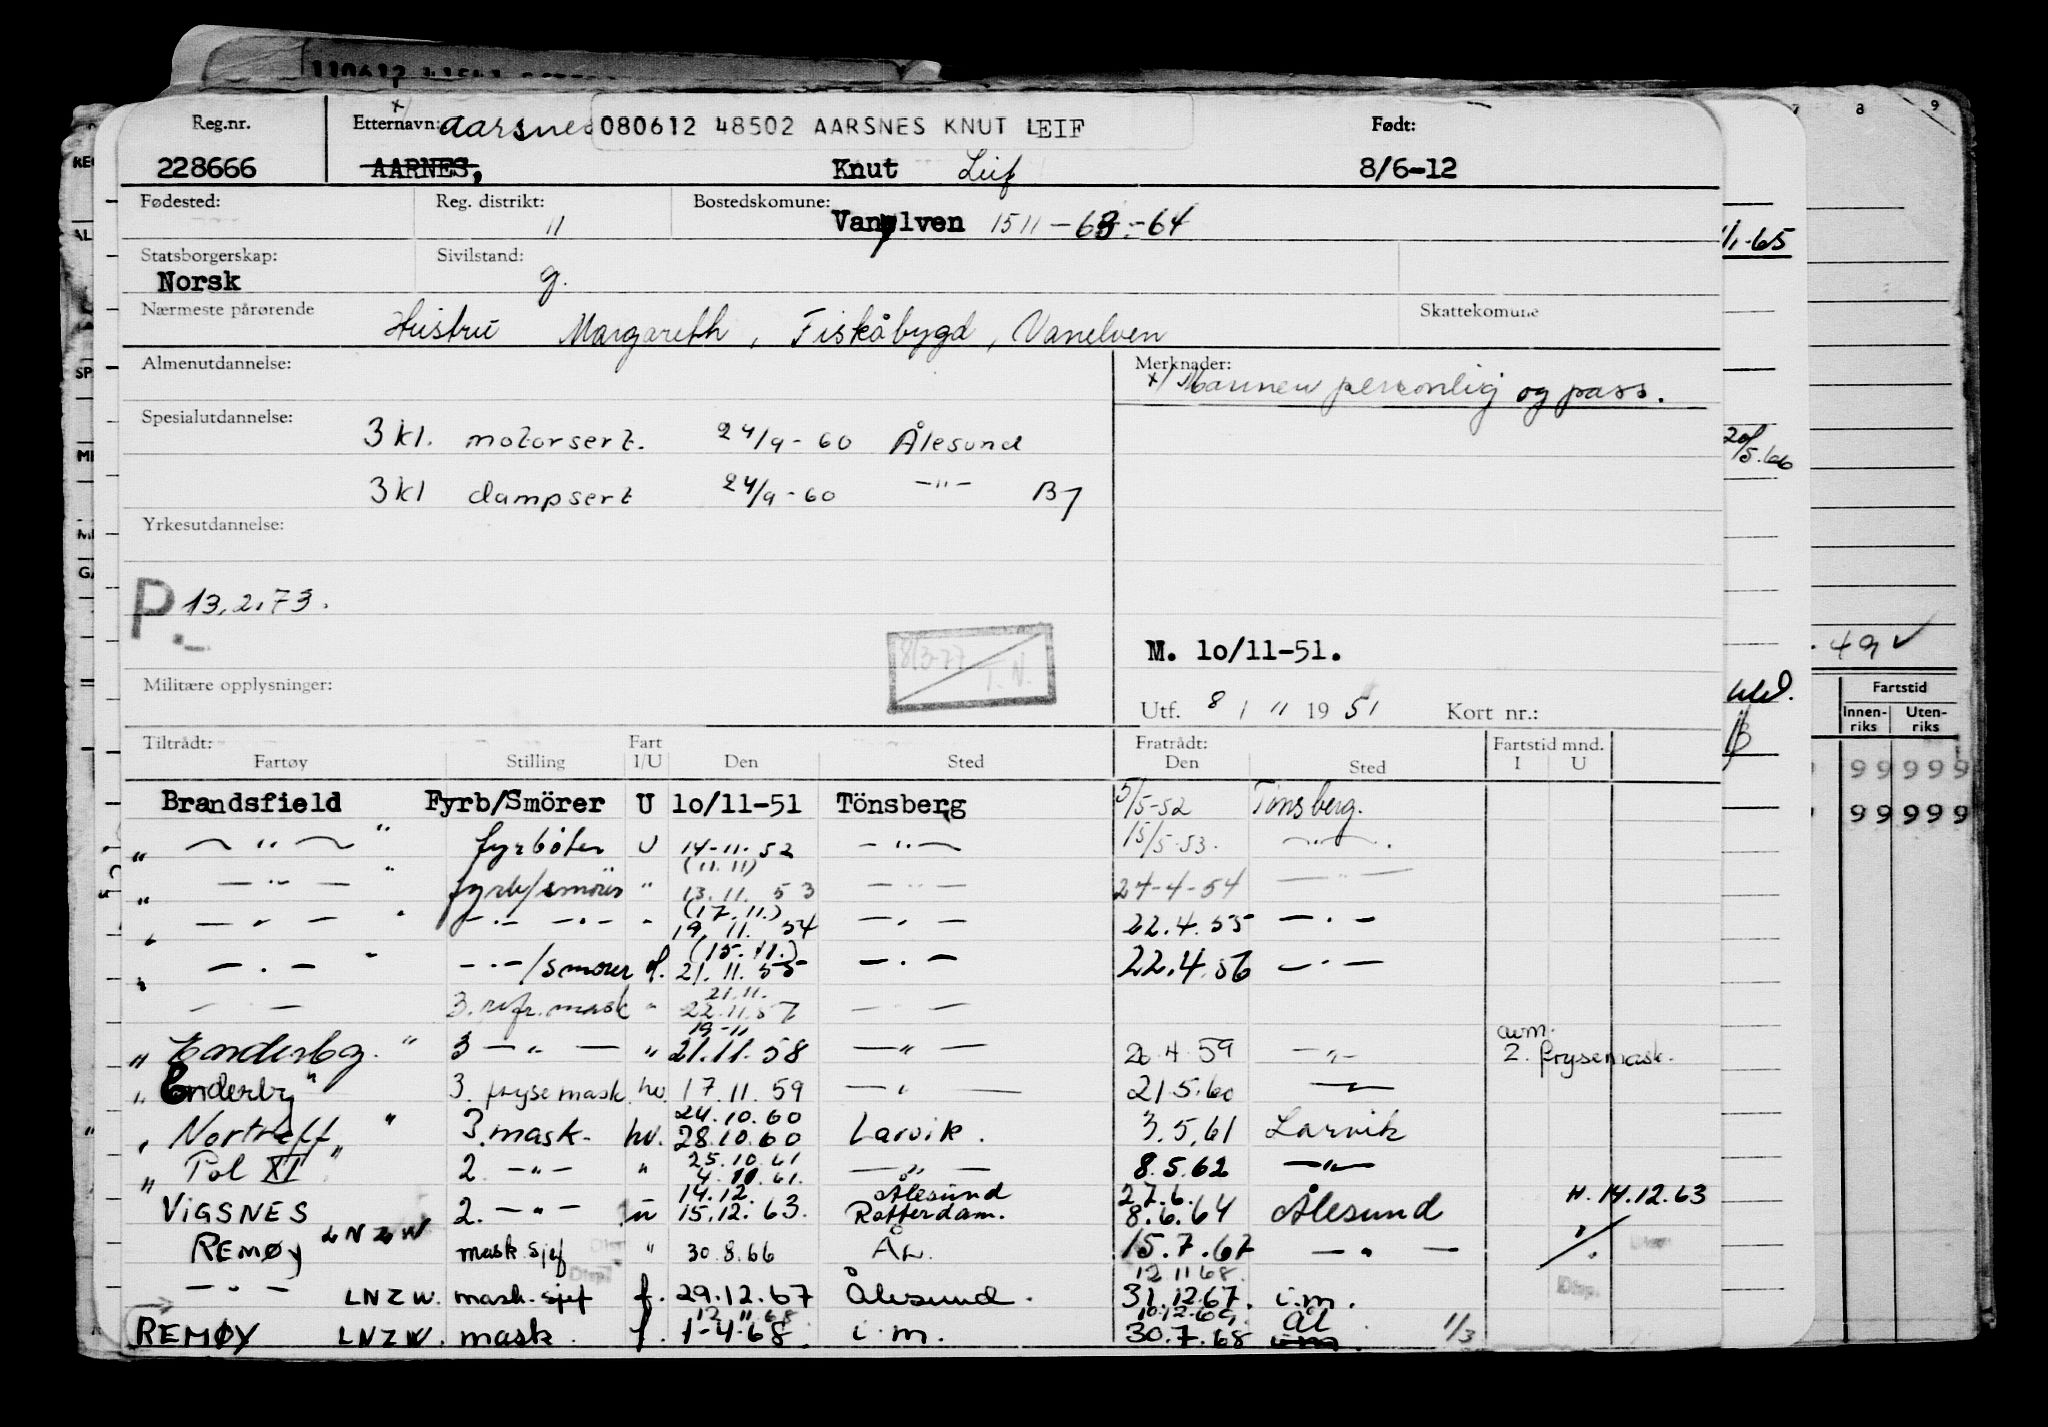 Reg.nr. Etternavn: x/ Aarsnes 080612 48502 AARSNES KNUT LEIF Født:
228666 AARNES, Knut Leif 8/6-12
Fødested: Reg. distrikt: 11 Bostedskomune: Vanylven 1511 -68.-64
Statsborgerskap: Norsk Sivilstand: g.
Nærmeste pårørende Hustru Margareth, Fiskåbygd, Vanelven Skattekomune
Almenutdannelse: Merknader:
x/ Mannen personlig og pass.
Spesialutdannelse: 3 kl. motorsert. 24/9-60 Ålesund
3 kl dampsert 24/9-60 -"- By
Yrkesutdannelse:
P 13.2.73.
8/3-77 T.N.
M. 10/11-51.
Militære opplysninger: Utf. 8 / 11 1951 Kort nr.:
Tiltrådt: Fart Fratrådt: Fartstid mnd.
Fartøy Stilling I/U Den Sted Den Sted I U
Brandsfield Fyrb/Smörer U 10/11-51 Tönsberg 5/5-52 Tönsberg.
" -"- " fyrbøter U 14-11.52 -"- 15/5-53. -"-.
(11.11)
" -"- " fyrb/smörer " 13.11.53 -"- 24-4-54 -"-
(17.11.)
" -"- " -"- -"- " 19.11.54 -"- 22.4.55 -"-
(15.11.)
" -"- " -"-/smörer f. 21.11.55 -"- 22.4.56 -"-
21.11.
- - 3. refr.mask " 22.11.57 - -
19-11
" Enderby. " 3 -"- " 21.11.58 -"- 20.4.59 -"- avm. 2. frysemask.
" Enderby " 3. frysemask. hv. 17.11.59 -"- 21.5.60 -"-
24.10.60
" Nortreff " 3. mask. hv. 28.10.60 Larvik. 3.5.61 Larvik
25.10.61
" Pol XI " 2. -"- " 4.11.61. -"- 8.5.62 -"-
14.12. Ålesund 27.6.
VIGSNES 2. -"- u 15.12.63. Rotterdam. 8.6.64 Ålesund H. 14.12.63
REMØY LNZW mask.sjef " 30.8.66 ÅL. 15.7.67 -"-
12 11 68.
-"- LNZW. mask.sjef f. 29.12.67 Ålesund. 31.12.67. i.m. Disp.
12 11 68 10.12.69. ÅL
REMØY LNZW. mask. f. 1-4-68. i.m. 30.7.68 i.m. 1/3
7 8 9
1/1-65
20/5.66
- 49 ✓
Fartstid
Innen-riks Uten-riks
9 9 9 9 9
9 9 9 9 9